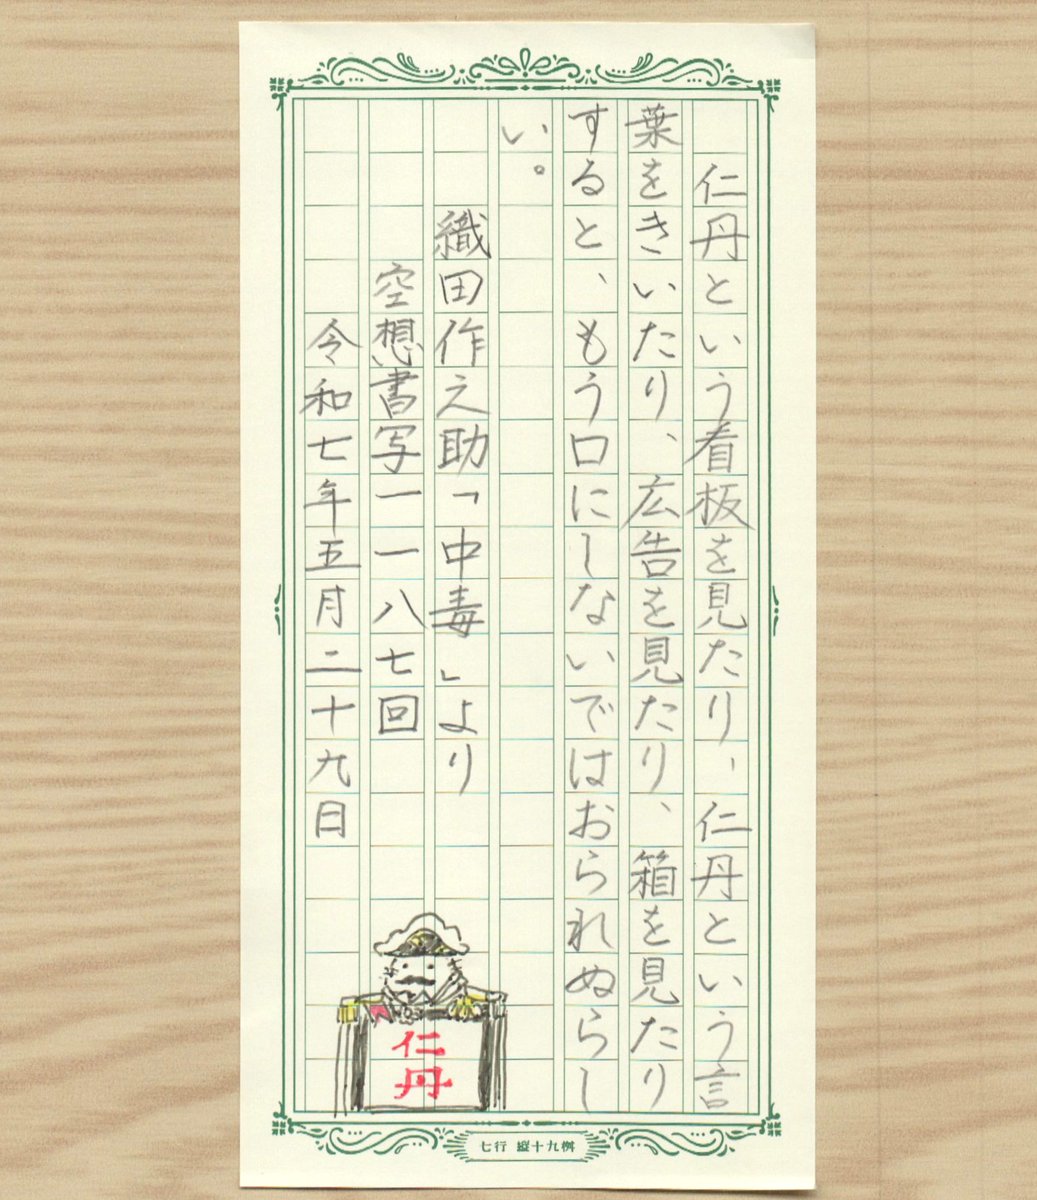 仁丹という看板を見たり、仁丹という言
葉をきいたり、広告を見たり、箱を見たり
すると、もう口にしないではおられぬらし
い。
織田作之助「中毒」より
空想書写一一八七回
令和七年五月二十九日
仁丹
七行 縦十九桝